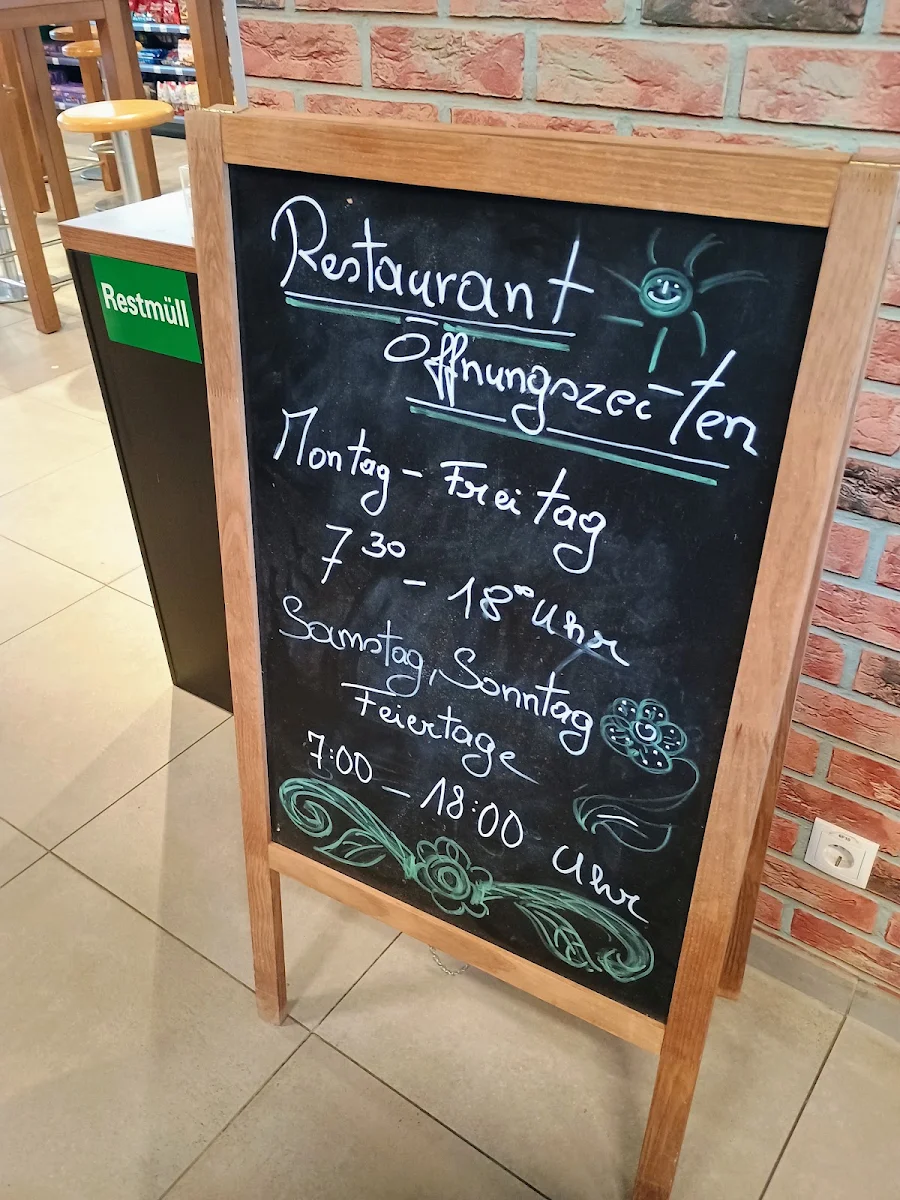 Restmüll
Restaurant
Öffnungszeiten
Montag - Freitag
7³⁰ - 18⁰⁰ Uhr
Samstag, Sonntag
Feiertage
7:00 - 18:00 Uhr